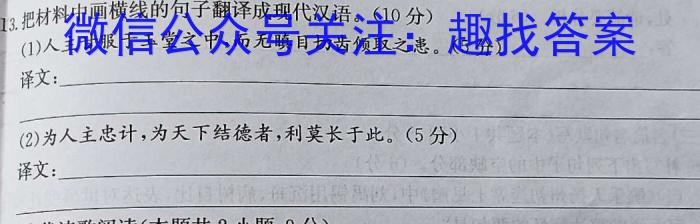 13.把材料中画横线的句子翻译成现代汉语。(10分)
微信公众号关注：趣找答案
(1)人主 服于玉堂之中,而无瞋目切齿倾取之患。(5分)
译文:
(2)为人主忠计,为天下结德者,利莫长于此。(5分)
译文: